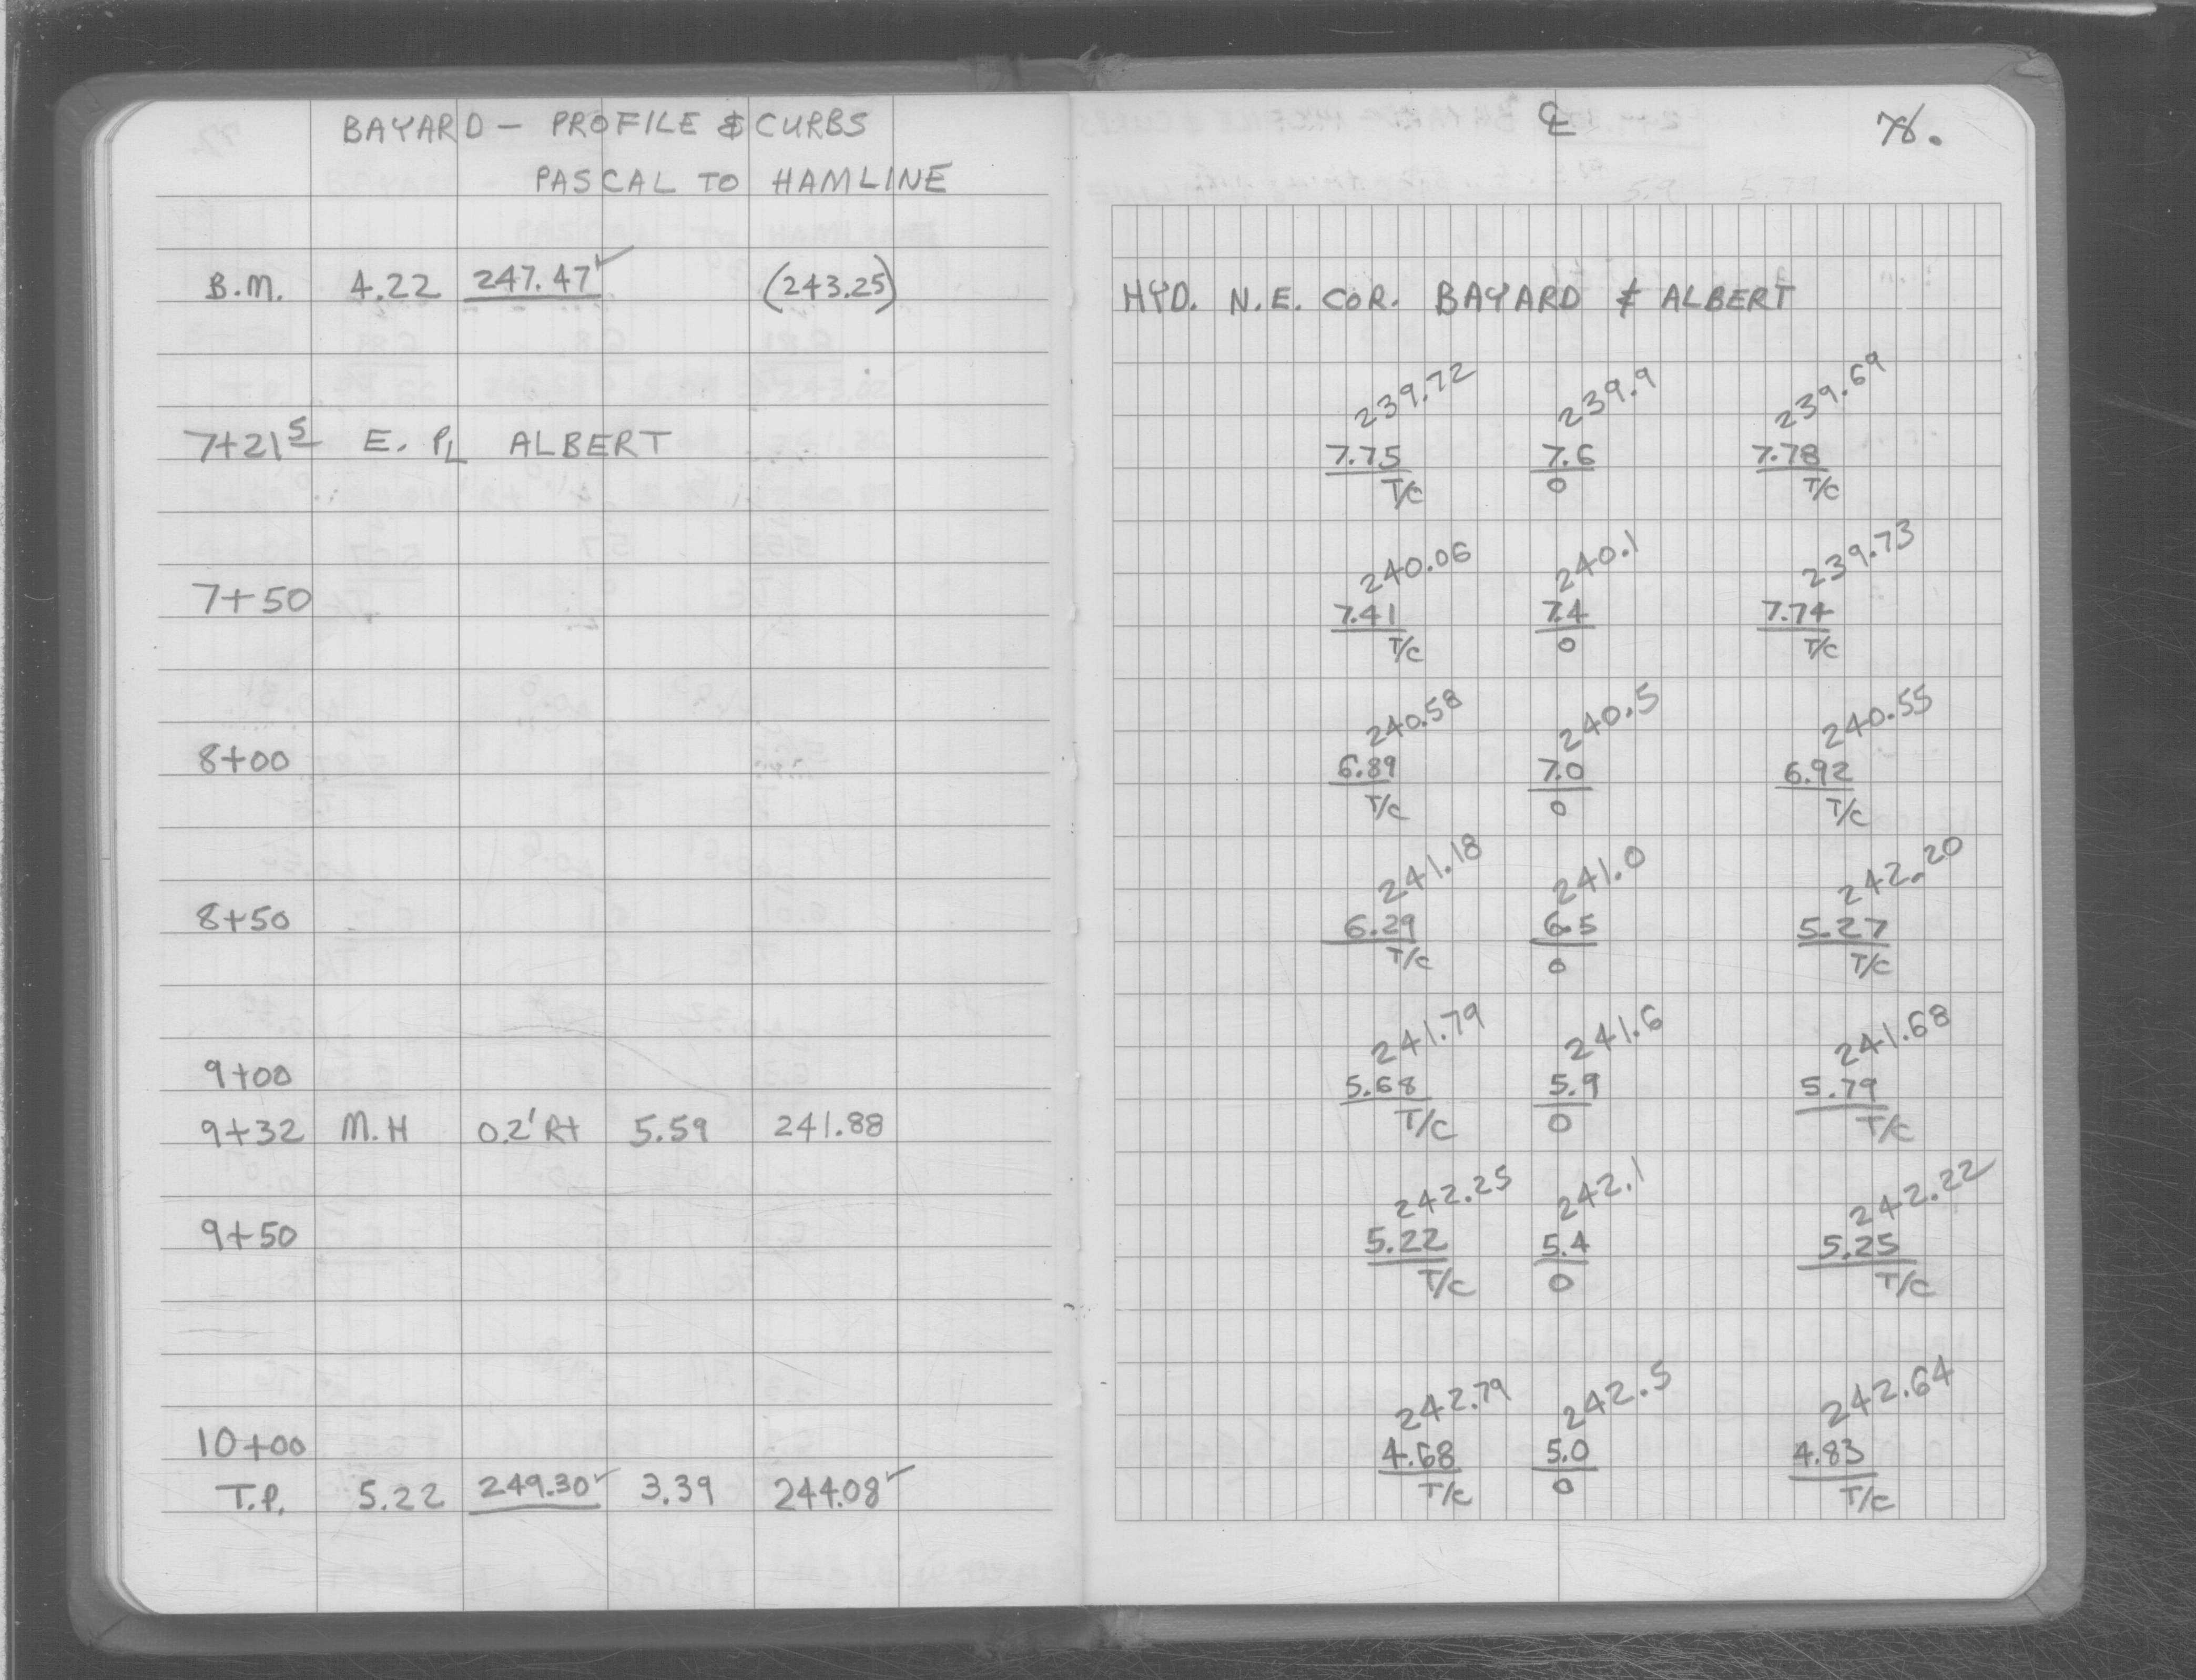 BAYARD - PROFILE & CURBS
PASCAL TO HAMLINE
B.M. 4.22 247.47✓ (243.25)
7+21⁵ E. PL ALBERT
7+50
8+00
8+50
9+00
9+32 M.H 0.2' Rt 5.59 241.88
9+50
10+00
T.P. 5.22 249.30✓ 3.39 244.08✓
℄
HYD. N.E. COR. BAYARD & ALBERT
239.72 239.9 239.69
7.75 7.6 7.78
T/C 0 T/C
240.06 240.1 239.73
7.41 7.4 7.74
T/C 0 T/C
240.58 240.5 240.55
6.89 7.0 6.92
T/C 0 T/C
241.18 241.0 242.20
6.29 6.5 5.27
T/C 0 T/C
241.79 241.6 241.68
5.68 5.9 5.79
T/C 0 T/C
242.25 242.1 242.22
5.22 5.4 5.25
T/C 0 T/C
242.79 242.5 242.64
4.68 5.0 4.83
T/C 0 T/C